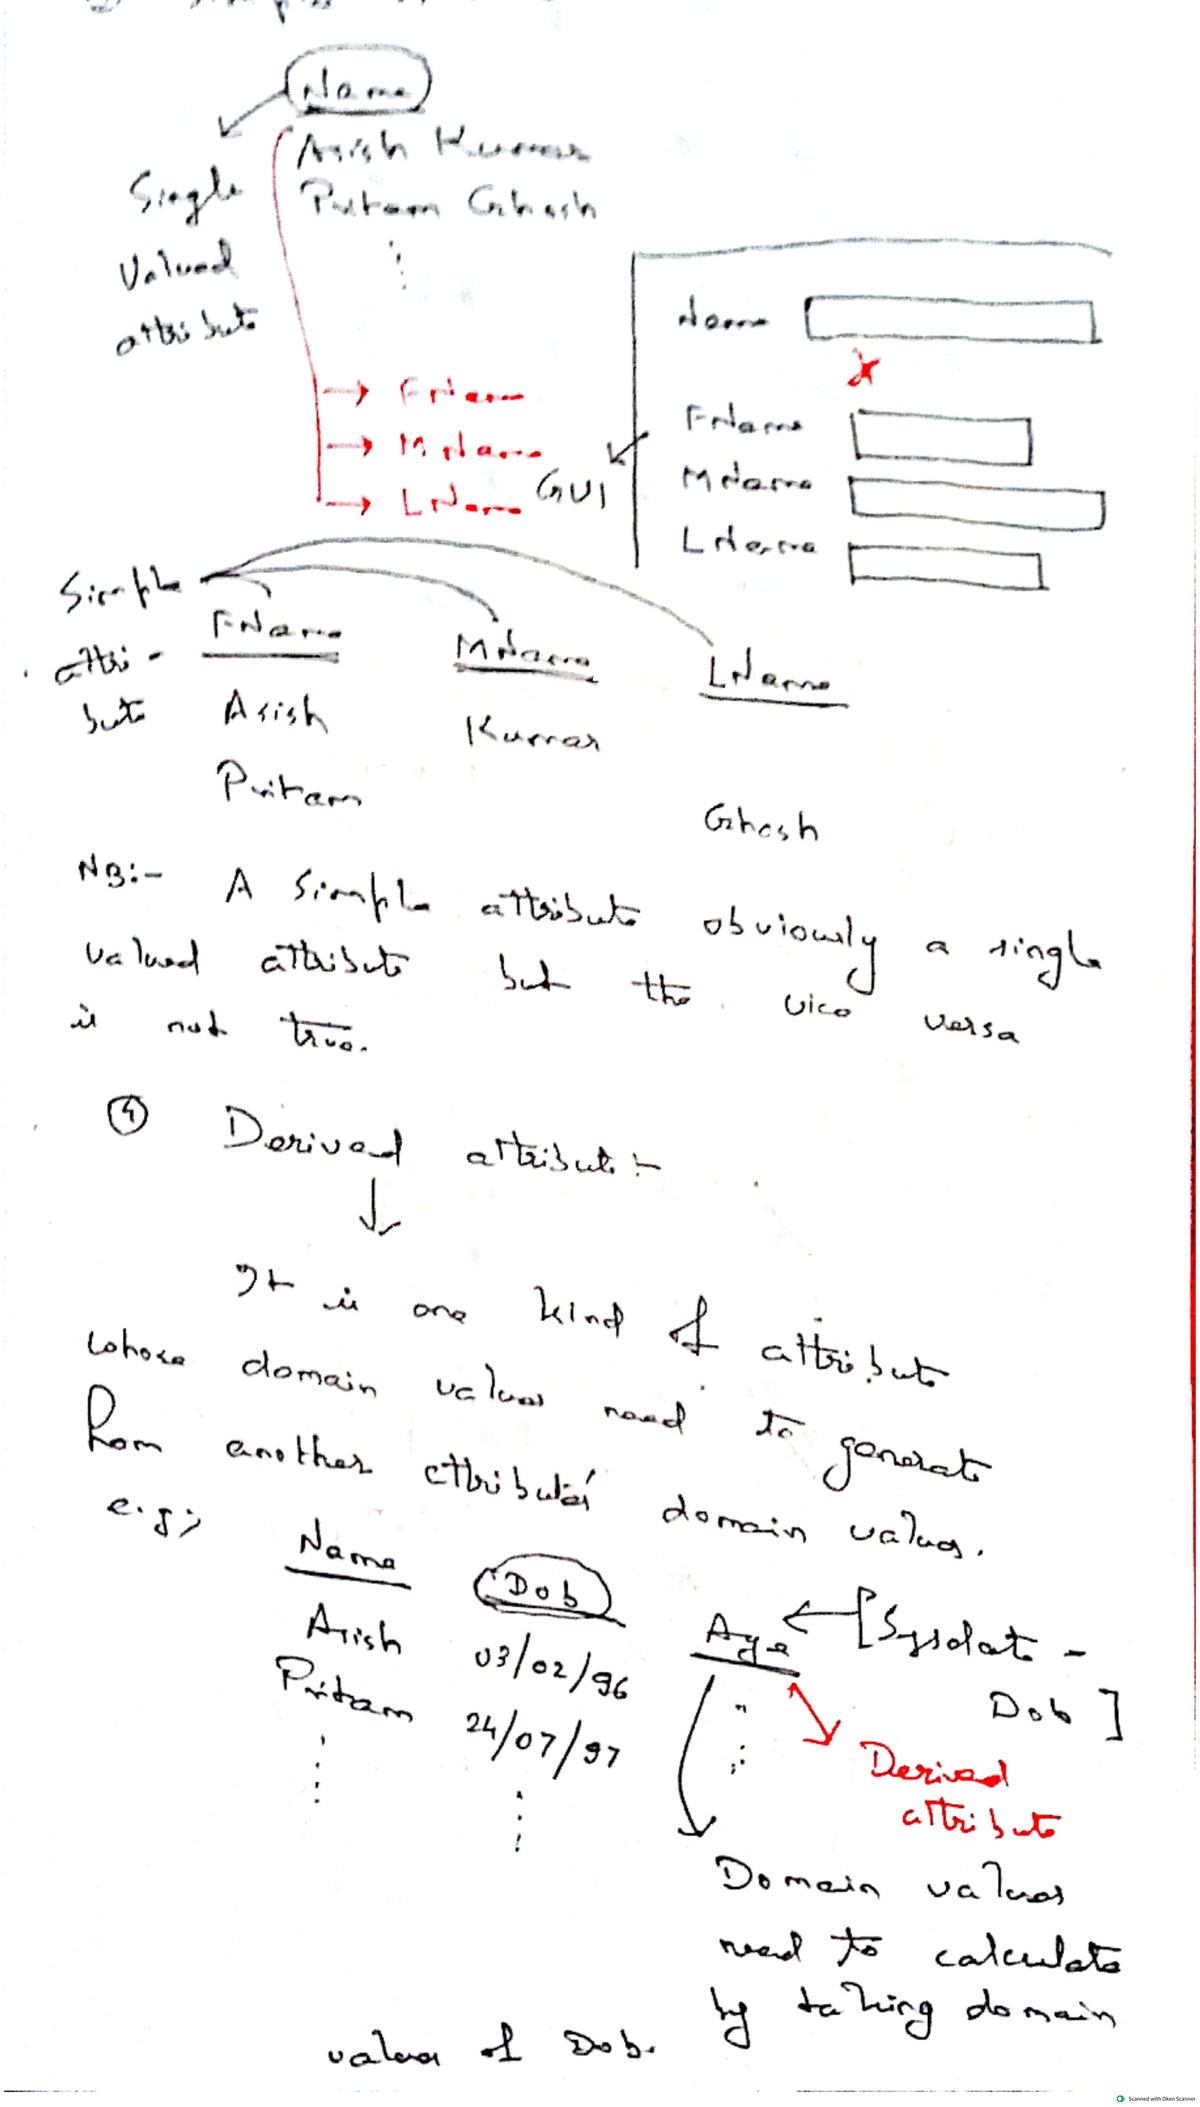 Name
Asish Kumar
Pritam Ghosh
Single
Valued
attribute
Name
x
→ FName
→ MName
→ LName
GUI
FName
MName
LName
Simple
attri-
bute
FName MName LName
Asish Kumar
Pritam Ghosh
NB:- A simple attribute obviously a single
valued attribute but the vice versa
is not true.
④ Derived attribute:-
It is one kind of attribute
whose domain values need to generate
from another attributes' domain values.
e.g;
Name Dob Age ← [Sysdate -
Dob]
Asish 03/02/96 "
Pritam 24/07/97
Derived
attribute
Domain values
need to calculate
by taking domain
values of Dob.
Scanned with Oken Scanner